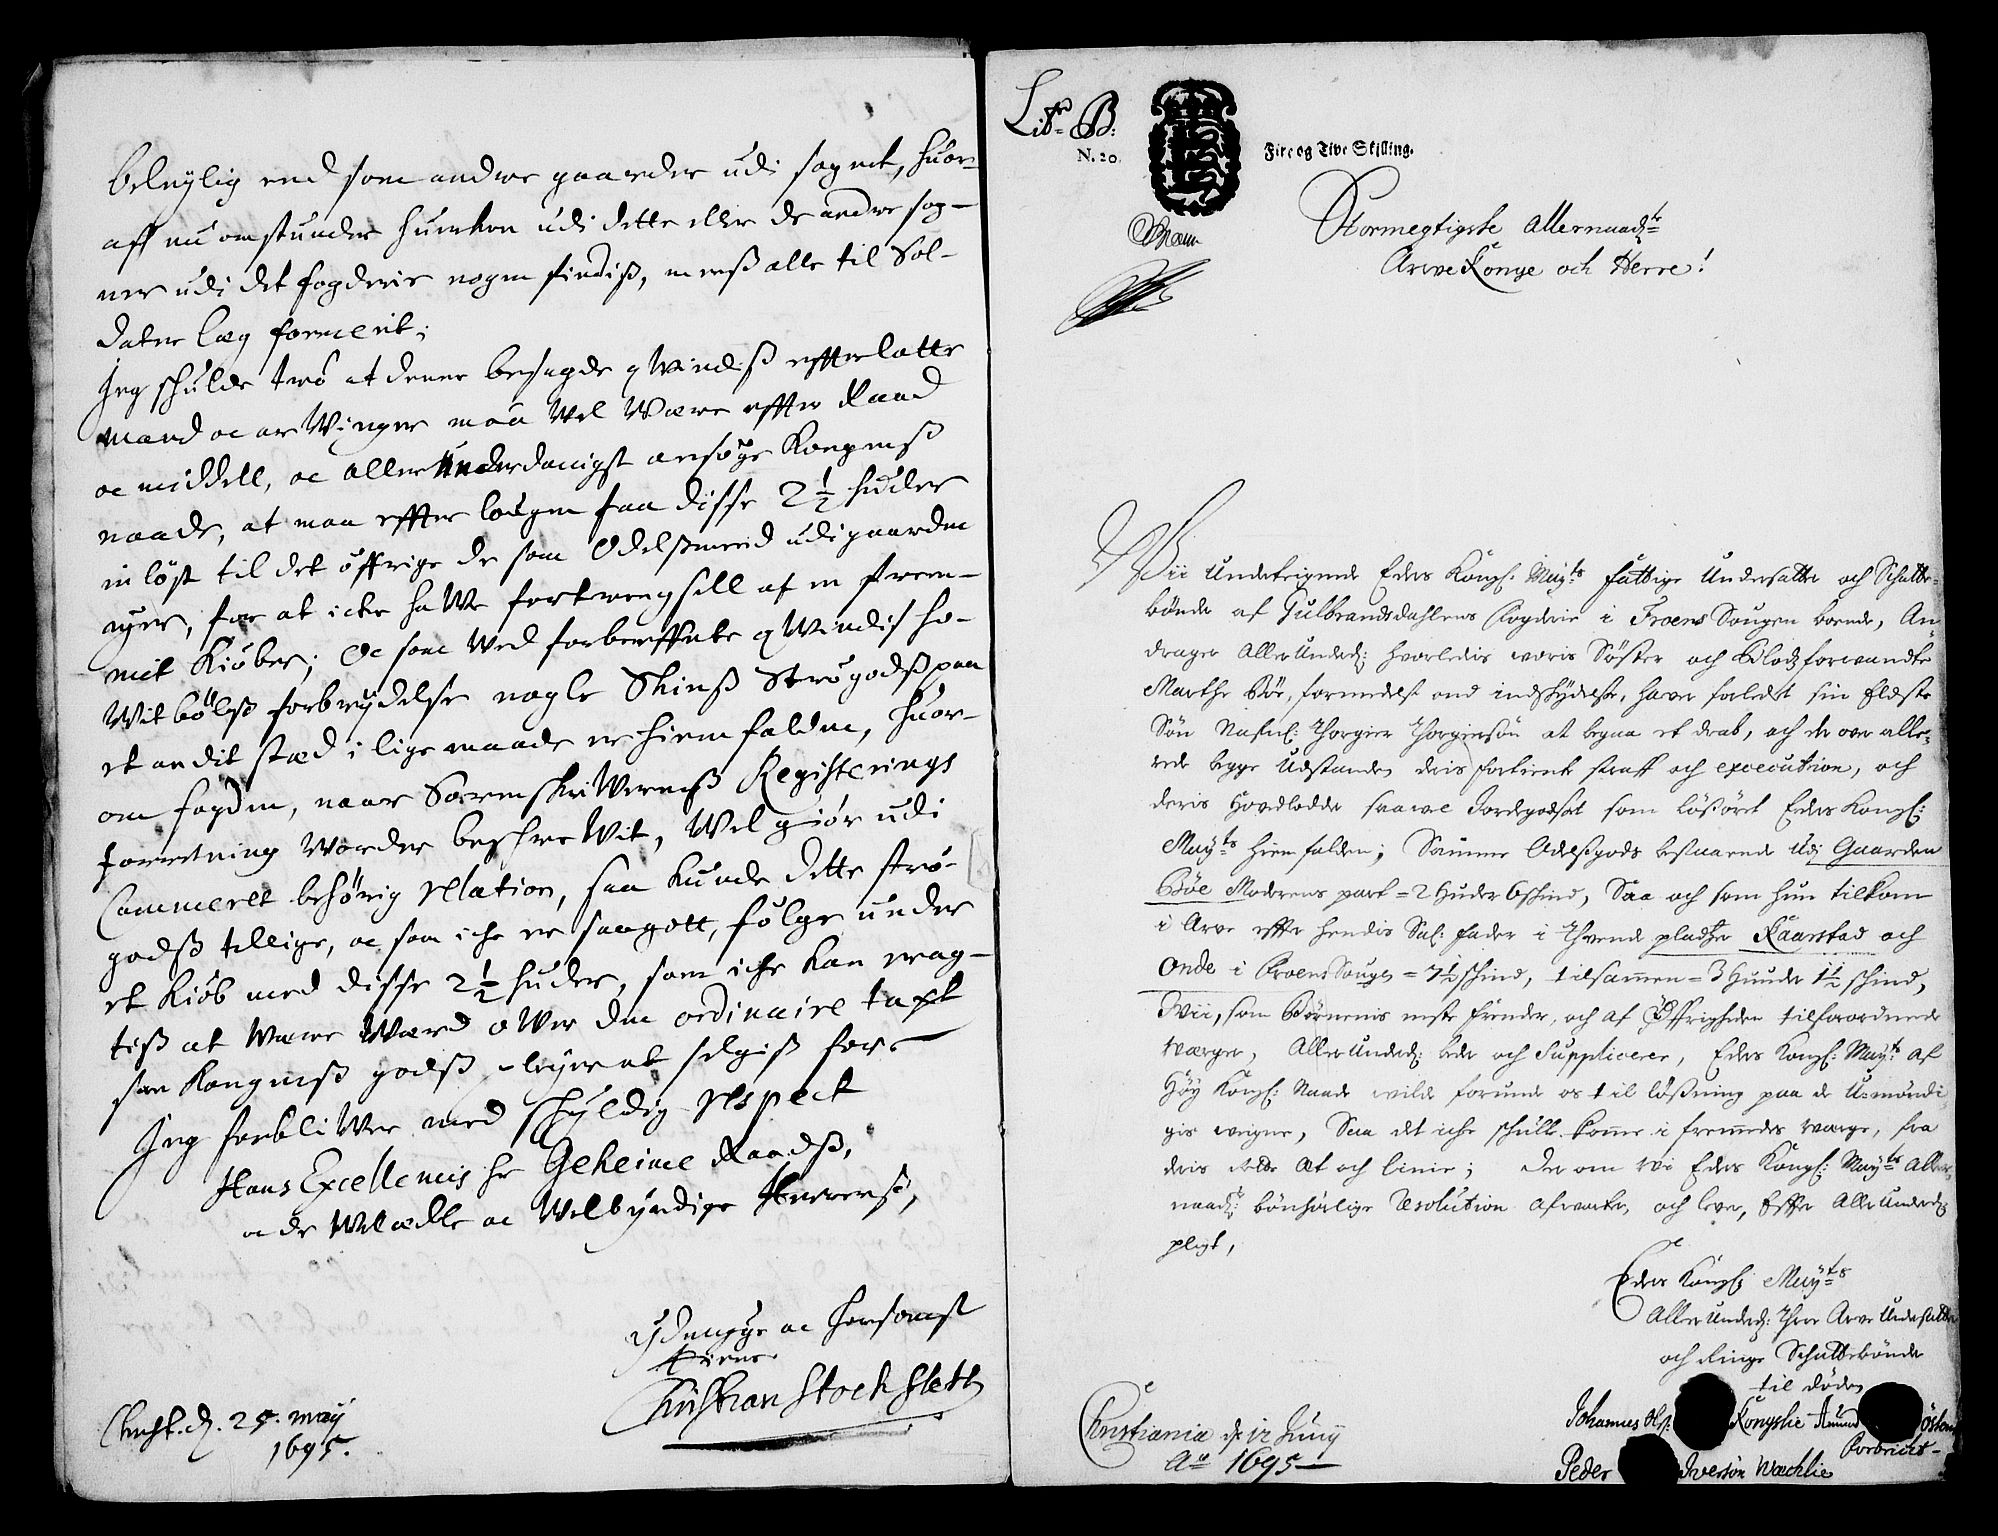 beleylig end som andre gaarder udi sognet, huor-
aff nu omstunder huerken udi dette eller de andre sog-
ner udi det fogderie nogen findiß, mens alle til Sol-
dater læg formerit;
Jeg schulde troe at denne besagde qWindiß effterlatte
mand oc arWinger maa Vel Være effter Raad
oc middell, oc allerUnderdanigst ansøge Kongenß
naade, at maa effter lougen faa disse 2½ huder
inløst til det øffrige de som Odelßmend udi gaarden
eyer, for at icke haWe fortrengsell af en frem-
mit Kiøber; Oc som Ved forberørte qWindis ho-
Witbølß forbrydelse nogle Skinß Strøgodß paa
et andit stæd i lige maade er hiemfalden, huor-
om fogden, naar SorenskriWerenß Registerings
forretning Vorder beskreWit, Wel giør udi
Cammeret behørig relation, saa kunde dette strø-
godß tillige, oc som iche er saa gott, følge under
et Kiøb med disse 2½ huder, som iche kan rag-
tiß at Være Værd oWer den ordinaire taxt
som Kongenß godß pleyer at selgiß for.
Jeg forbliWer med schyldig respect
Hans Excellences hr Geheime Raadß,
oc de Welædle oc Welbyrdige Herrerß,
Ydmyge oc horsomst
tiener
Christian Stockfleth
Christ. d. 25. may
1695.
Litr B:
N. 20.
Fire og Tive Skilling.
Stormegtigste Allernaadste
Arwe Konge och Herre!
Wii Undertegnede Eders Kongl: Mayts fattige Undersatter och Schatte-
bønder af Gulbrandsdahlens Fogderie i Froens Sougen boende, An-
drager AllerUnderd: hvorledis woris Søster och Blodsforwandte
Marthe Bøe, formedelst ond indskydelse, haver forledt sin Eldste
Søn Nafnl: Thorgier Thorgiersøn at begaa et drab, och de over alle-
rede begge Udstanden deris fortiente straff och execution, och
deris Hovedlodder saavel Jordegodset som løßøret Eders Kongl:
Mayts hiemfalden; Samme Odelßgods bestaaende Udj Gaarden
Bøe Moderens part = 2 Huder 6 skind, Saa och som hun tilkom
i Arve effter hendis Sal: Fader i Thvende pladtzer Kaarstad och
Onde i Froens Sougn = 7½ skind, tilsamen = 3 Huuder 1½ skind,
Wii, som Børnenis neste frender, och af Øffrigheden tilforordnede
Værger, AllerUnderd: beder och Supplicerer, Eders Kongl: Mayt: af
Høy Kongl: Naade wilde forunde os til løßning paa de U-mondi-
gis weigne, Saa det iche schulle komme i fremmedes værge, fra
deris rette Æt och linie; Der om wi Eders Kongl: Mayts Aller-
naadst: bønhørlige Resolution afvarter, och lever, Effter AllerUnderd:
pligt,
Eders Kongl: Mayts
AllerUnderd: Throe Arve Undersatter
och Ringe Schattebønder
til døden
Johannes Ols: Amund
Peder Iversøn Wachlie
Christiania d 12 Junij
Ao 1695